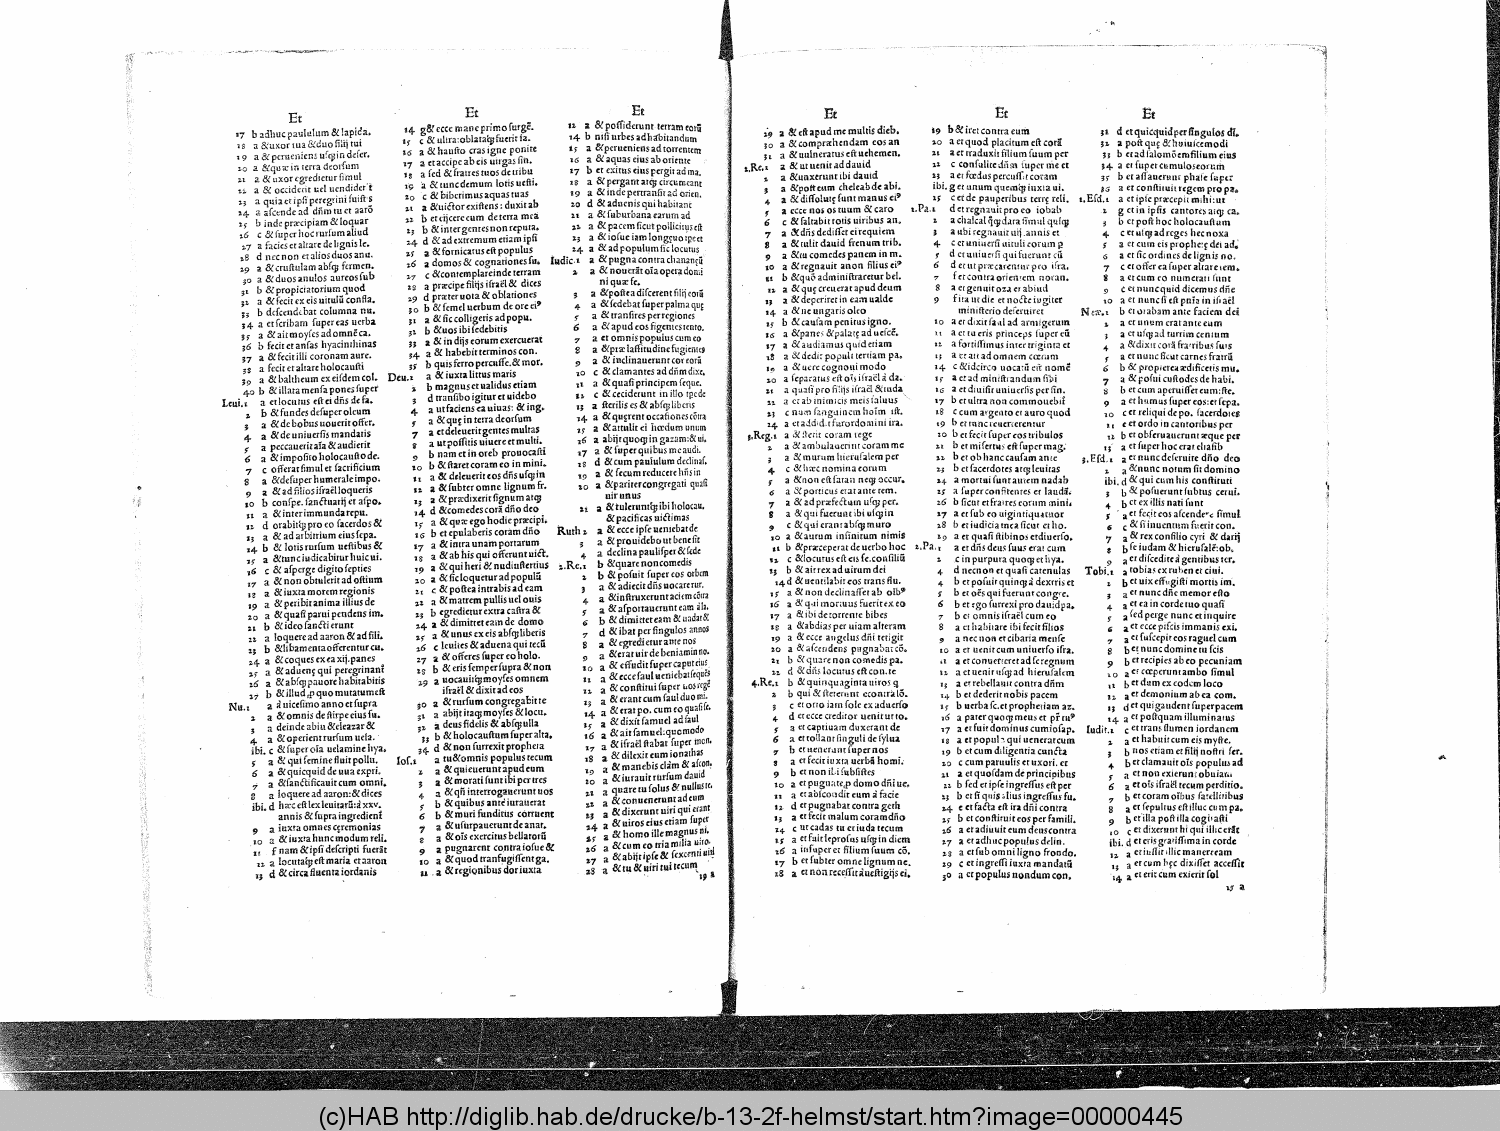 Et
17 b adhuc paululum & lapida.
18 a & uxor tua & duo filij tui
20 a & quæ in terra deorsum
21 a & uxor egredietur simul
24 a ascende ad dñm tu et aarõ
25 b inde præcipiam & loquar
26 c & super hoc rursum aliud
27 a facies et altare de lignis le.
28 d nec non et alios duos anu.
29 a & crustulam absq; fermen.
30 a & duos anulos aureos sub
31 b & propiciatorium quod
32 a & fecit ex eis uitulũ confla.
33 b descendebat columna nu.
34 a et scribam super eas uerba
35 a & ait moyses ad omnẽ ca.
36 b fecit et ansas hyacinthinas
37 a & fecit illi coronam aure.
38 a fecit et altare holocausti
39 a & baltheum ex eisdem col.
40 b & illata mensa pones super
Leui.1 a et locutus est ei dñs de ta.
2 b & fundes desuper oleum
3 a & de bobus uouerit offer.
4 a & de uniuersis mandatis
5 a peccauerit asa & audierit
6 a & imposito holocausto de.
7 c offerat simul et sacrificium
8 a & desuper humerale impo.
9 a & ad filios israël loqueris
10 b conspe. sanctuarij et aspo.
11 a & inter immunda repu.
12 d orabitq; pro eo sacerdos &
13 a & ad arbitrium eius sepa.
14 b & lotis rursum uestibus &
15 a & tunc iudicabitur huic ui.
16 c & asperge digito septies
17 a & non obtulerit ad ostium
18 a & iuxta morem regionis
19 a & peribit anima illius de
20 a & quasi parui pendens im.
21 b & ideo sancti erunt
22 a loquere ad aaron & ad fili.
23 b & libamenta offerentur cu.
24 a & coques ex ea xij. panes
25 a & aduenę qui peregrinant
26 a & absq; pauore habitabitis
27 b & illud ꝓ quo mutatum est
Nu.1 a & uicesimo anno et supra
2 a & omnis de stirpe eius su.
3 a deinde abiu & eleazar &
4 a & operient rursum uela.
ibi. c & super oĩa uelamine hya.
5 a & qui semine fluit pollu.
6 a & quicquid de uua expri.
7 a & sanctificauit cum omni.
8 a loquere ad aaron: & dices
ibi. d hæc est lex leuitarũ: à xxv.
annis & supra ingredient
9 a iuxta omnes ceremonias
10 a & iuxta hunc modum reli.
11 f nam & ipsi descripti fuerãt
12 a locutaq; est maria et aaron
13 d & circa fluenta iordanis
Et
14 g & ecce mane primo surgẽ.
15 c & ultra: oblataq; fuerit fa.
16 a & hausto cras igne ponite
17 a et accipe ab eis uirgas sin.
18 a sed & fratres tuos de tribu
19 a & tunc demum lotis uesti.
20 c & biberimus aquas tuas
21 a & uictor existens: duxit ab
22 b et eijcere cum de terra mea
23 b & inter gentes non reputa.
24 d & ad extremum etiam ipsi
25 a & fornicatus est populus
26 a domos & cognationes su.
27 c & contemplare inde terram
28 a præcipe filijs israël & dices
29 d præter uota & oblationes
30 b & semel uerbum de ore ei⁹
31 a & sic colligeris ad popu.
32 b & uos ibi sedebitis
33 a & in dijs eorum exercuerat
34 a & habebit terminos con.
35 b quis ferro percusse. & mor.
Deu.1 a & iuxta littus maris
2 b magnus et ualidus etiam
3 d transibo igitur et uidebo
4 a ut faciens ea uiuas: & ing.
5 a & quę in terra deorsum
7 a et deleuerit gentes multas
8 a ut possitis uiuere et multi.
9 b nam et in oreb prouocasti
10 b & staret coram eo in mini.
11 a & deleuerit eos dñs usq; in
12 a & subter omne lignum fr.
13 a & prædixerit signum atq;
14 d & comedes corã dño deo
15 a & quæ ego hodie præcipi.
16 b et epulaberis coram dño
17 a & intra unam portarum
18 a & ab his qui offerunt uict.
19 a & qui heri & nudiustertius
20 a & sic loquetur ad populũ
21 c & postea intrabis ad eam
22 a & matrem pullis uel ouis
23 b egredietur extra castra &
24 a & dimittet eam de domo
25 a & unus ex eis absq; liberis
26 c leuites & aduena qui tecũ
27 a & offeres super eo holo.
28 b & eris semper supra & non
29 a uocauitq; moyses omnem
israël & dixit ad eos
30 a & rursum congregabit te
31 a abijt itaq; moyses & locu.
32 a deus fidelis & absq; ulla
33 b & holocaustum super alta.
34 d & non surrexit propheta
Ios.1 a tu & omnis populus tecum
2 a & quieuerunt apud eum
3 a & morati sunt ibi per tres
4 a & qñ interrogauerunt uos
5 b & quibus ante iurauerat
6 b & muri funditus corruent
7 a & usurpauerunt de anat.
8 a & oĩs exercitus bellatorũ
9 a pugnarent contra iosue &
10 a & quod transfugissent ga.
11 a & regionibus dor iuxta
Et
12 a & possiderunt terram eorũ
14 b nisi urbes ad habitandum
15 a & perueniens ad torrentem
16 a & aquas eius ab oriente
17 b et exitus eius pergit ad ma.
18 a & pergant atq; circumeant
19 a & inde pertransit ad orien.
20 d & aduenis qui habitant
21 a & suburbana earum ad
22 a & pacem sicut pollicitus est
23 a & iosue iam longeuo ipse et
24 a & ad populum sic locutus
Iudic.1 a & pugna contra chananęũ
2 a & nouerãt oĩa opera domi
ni quæ fe.
3 a & postea discerent filij eorũ
4 a & sedebat super palma quę
5 a & transires per regiones
6 a & apud eos figentes tento.
7 a et omnis populus cum eo
8 a & præ lassitudine fugientes
9 a & inclinauerunt cor eorũ
10 c & clamantes ad dñm dixe.
11 a & quasi principem seque.
12 c & ceciderunt in illo tpe de
13 a sterilis es & absq; liberis
14 a & quęrent occasiones cõtra
15 a & attulit ei hœdum unum
16 a abijt quoq; in gazam: & ui.
17 a & super quibus me audi.
18 d & cum paululum declinas.
19 a & secum reducere hñs in
20 a & pariter congregati quasi
uir unus
21 a & tuleruntq; ibi holocau.
& pacificas uictimas
Ruth 2 a & ecce ipse ueniebat de
3 a & prouidebo ut bene sit
4 a declina paulisper & sede
2.Re.1 b & quare non comedis
2 b & posuit super eos orbem
3 a & adiecit dñs uocare rur.
4 a & instruxerunt aciem cõtra
5 a & asportauerunt eam à la.
6 b & dimittet eam & uadat &
7 d & ibat per singulos annos
8 a & egredietur ante nos
9 a & erat uir de beniamin no.
10 b & effudit super caput eius
11 a & ecce saul ueniebat sequẽs
12 a & constitui super uos regẽ
13 a & erant cum saul duo mi.
14 a & erat po. cum eo quasi se.
15 a & dixit samuel ad saul
16 a & ait samuel: quomodo
17 a & israël stabat super mon.
18 a & dilexit eum ionathas
19 a & manebis clàm & abscon.
20 a & iurauit rursum dauid
21 a quare tu solus & nullus te.
22 a & conuenerunt ad eum
23 a & dixerunt uiri qui erant
24 a & uiros eius etiam super
25 a & homo ille magnus ni.
26 a & cum eo tria milia uiro.
27 a & abijt ipse & sexcenti uiri
28 a & tu & uiri tui tecum
19 a
Et
29 a & est apud me multis dieb.
30 a & comprehendam eos an
31 a & uulneratus est uehemen.
2.Re.1 a & ut uenit ad dauid
2 a & unxerunt ibi dauid
3 a & post eum cheleab de abi.
4 a & dissolutę sunt manus ei⁹
5 a ecce nos os tuum & caro
6 c & saltabit totis uiribus an.
7 a & dñs dedisset ei requiem
8 a & tulit dauid frenum trib.
9 a & tu comedes panem in m.
10 a & regnauit anon filius ei⁹
11 b & quò administraretur bel.
12 a & quę creuerat apud deum
13 a & deperiret in eam ualde
14 a & ne ungaris oleo
15 b & causam penitus igno.
16 a & panes & palatę ad uescẽ.
17 a & audiamus quid etiam
18 a & dedit populi tertiam pa.
19 a & uere cognoui modo
20 a separatus est oĩs israël à da.
21 a quasi pro filijs israël & iuda
22 a et ab inimicis meis saluus
23 c num sanguinem hoĩm ist.
24 a et addidit furor domini ira.
3.Reg.1 a & sterit coram rege
2 a & ambulauerunt coram me
3 a & murum hierusalem per
4 c & hæc nomina eorum
5 a & non est satan neq; occur.
6 a & porticus erat ante tem.
7 a & ad præfectum usq; per.
8 a & qui fuerunt ibi usq; in
9 c & qui erant absq; muro
10 a & aurum infinitum nimis
11 b & præceperat de uerbo hoc
12 c & locutus est eis se. consiliũ
13 b & air rex ad uirum dei
14 d & uentilabit eos trans flu.
15 a & non declinasset ab oĩb⁹
16 a & qui mortuus fuerit ex eo
17 a & ibi de torrente bibes
18 a & abdias per uiam alteram
19 a & ecce angelus dñi tetigit
20 a & ascendens pugnabat cõ.
21 b & quare non comedis pa.
22 d & dñs locutus est con. te
4.Re.1 b & quinquaginta uiros q̃
2 b qui & steterunt econtra lõ.
3 c et orto iam sole ex aduerso
4 d et ecce creditor uenit ut to.
5 a et captiuam duxerant de
6 a et tollant singuli de sylua
7 b et uenerunt super nos
8 a et fecit iuxta uerbũ homi.
9 b et non illi subsistes
10 a et pugnate ꝓ domo dñi ue.
11 a et abscondit eum à facie
12 d et pugnabat contra geth
13 a et fecit malum coram dño
14 c ut cadas tu et iuda tecum
15 a et fuit leprosus usq; in diem
16 a insuper et filium suum cõ.
17 b et subter omne lignum ne.
28 a et non recessit à uestigijs ei.
Et
19 b & iret contra eum
20 a et quod placitum est corã
21 a et traduxit filium suum per
22 c consulite dñm super me et
23 a et fœdus percussit coram
ibi. g et unum quemq; iuxta ui.
25 c et de pauperibus terrę reli.
1.Pa.1 d et regnauit pro eo iobab
3 a ubi regnauit uij. annis et
4 c et uniuersi uiruli eorum p
5 d et uniuersi qui fuerunt cũ
6 d et ut præcarentur pro isra.
7 f et contra orientem noran.
8 a et genuit oza et abiud
9 f ita ut die et nocte iugiter
ministerio deseruiret
10 a et dixit saul ad armigerum
11 a et tu eris princeps super eũ
12 a fortissimus inter triginta et
13 a et ait ad omnem cœtum
14 c & idcirco uocatũ est nomẽ
15 a et ad ministrandum sibi
16 a et diuisit uniuersis per sin.
17 b et ultra non commouebit
18 c cum argento et auro quod
19 b et tunc reuerterentur
20 b et fecit super eos tribulos
21 b et misertus est super mag.
22 b et ob hanc causam ante
23 b et sacerdotes atq; leuitas
24 a mortui sunt autem nadab
25 a super confitentes et laudã.
26 b sicut et fratres eorum mini.
27 a et sub eo uigintiquatuor
28 b et iudicia mea sicut et ho.
29 a et quasi stibinos et diuerso.
2.Pa.1 a et dñs deus suus erat cum
2 c in purpura quoq; et hya.
4 d necnon et quasi catenulas
4 b et posuit quinq; à dextris et
5 b et oẽs qui fuerunt congre.
6 b et ego surrexi pro dauid pa.
7 b et omnis israël cum eo
8 a et habitare ibi fecit filios
9 a nec non et cibaria mense
10 a et uenit cum uniuerso isra.
11 a et conuerteret ad se regnum
12 a et uenit usq; ad hierusalem
13 a et rebellauit contra dñm
14 b et dederit nobis pacem
15 b uerba sc. et prophetiam az.
16 a pater quoq; meus et pr̃ tu⁹
17 a et fuit dominus cum iosap.
18 a et populo qui uenerat cum
19 b et cum diligentia cuncta
20 c cum paruulis et uxori. et
21 a et quosdam de principibus
22 b sed et ipse ingressus est per
23 b et si quis alius ingressus fu.
24 e et facta est ira dñi contra
25 b et constituit eos per famili.
26 a et adiuuit eum deus contra
27 a et ad huc populus delin.
28 a et sub omni ligno frondo.
29 c et ingressi iuxta mandatũ
30 a et populus nondum con.
Et
31 d et quicquid per singulos di.
32 a post quę & huiuscemodi
33 b et ad thalomẽ in filium eius
34 a et super cumulos eorum
35 b et assauerunt phase super
36 a et constituit regem pro pa.
1.Esd.1 a et ipse præcepit mihi: ut
2 g et in ipsis cantores atq; ca.
3 b et post hoc holocaustum
4 c et usq; ad reges hec noxa
5 a et cum eis prophetę dei ad.
6 a et sic ordines de lignis no.
7 c et offer ea super altare tem.
8 a et cum eo numerati sunt
9 c et nunc quid dicemus dñe
10 a et nunc si est pñia in israël
Nee.1 b et orabam ante faciem dei
2 a et unem erat ante eum
3 a et usq; ad turrim centum
4 a & dixit corã fratribus suis
5 a et nunc sicut carnes fratrũ
6 b & propterea ædificetis mu.
7 a & posui custodes de habi.
8 b et cum aperuisset cum: ste.
9 a et humus super eos: et sepa.
10 c et reliqui de po. sacerdotes
11 e et ordo in cantoribus per
12 b et obseruauerunt æque per
13 a et super hoc erat eliasib
3.Esd.1 a et nunc deseruite dño deo
2 a & nunc notum sit domino
ibi. d & qui cum his constituti
3 b & posuerunt subtus cerui.
4 b et ex illis nati sunt
5 a et fecit eos ascendere simul
6 c & si inuentum fuerit con.
7 a & rex consilio cyri & darij
8 b se iudam & hierusalẽ: ob.
9 a et discedite à gentibus ter.
Tobi.1 a tobias ex tuben et ciui.
2 b et uix effugisti mortis im.
3 a et nunc dñe memor esto
4 a et ea in corde tuo quasi
5 a sed perge nunc et inquire
6 a et ecce piscis immanis exi.
7 a et suscepit eos raguel cum
8 b et nunc domine tu scis
9 b et recipies ab eo pecuniam
10 a et cœperunt ambo simul
11 b et dum ex eodem loco
12 a et demonium ab ea com.
13 d et qui gaudent super pacem
14 a et postquam illuminatus
Iudit.1 c et trans flumen iordanem
2 a et habuit cum eis myste.
3 b nos etiam et filij nostri ser.
4 b et clamauit oĩs populus ad
5 a et non exierunt obuiam
6 a et oĩs israël tecum perditio.
7 b et coram oĩbus satellitibus
8 a et sepultus est illuc cum pa.
9 b et illa post illa cogitasti
10 c et dixerunt hi qui illic erãt
ibi. d et eris gratissima in corde
12 a et iussit illic manere eam
13 a et cum hęc dixisset accessit
14 a et erit cum exierit sol
15 a
(c)HAB http://diglib.hab.de/drucke/b-13-2f-helmst/start.htm?image=00000445